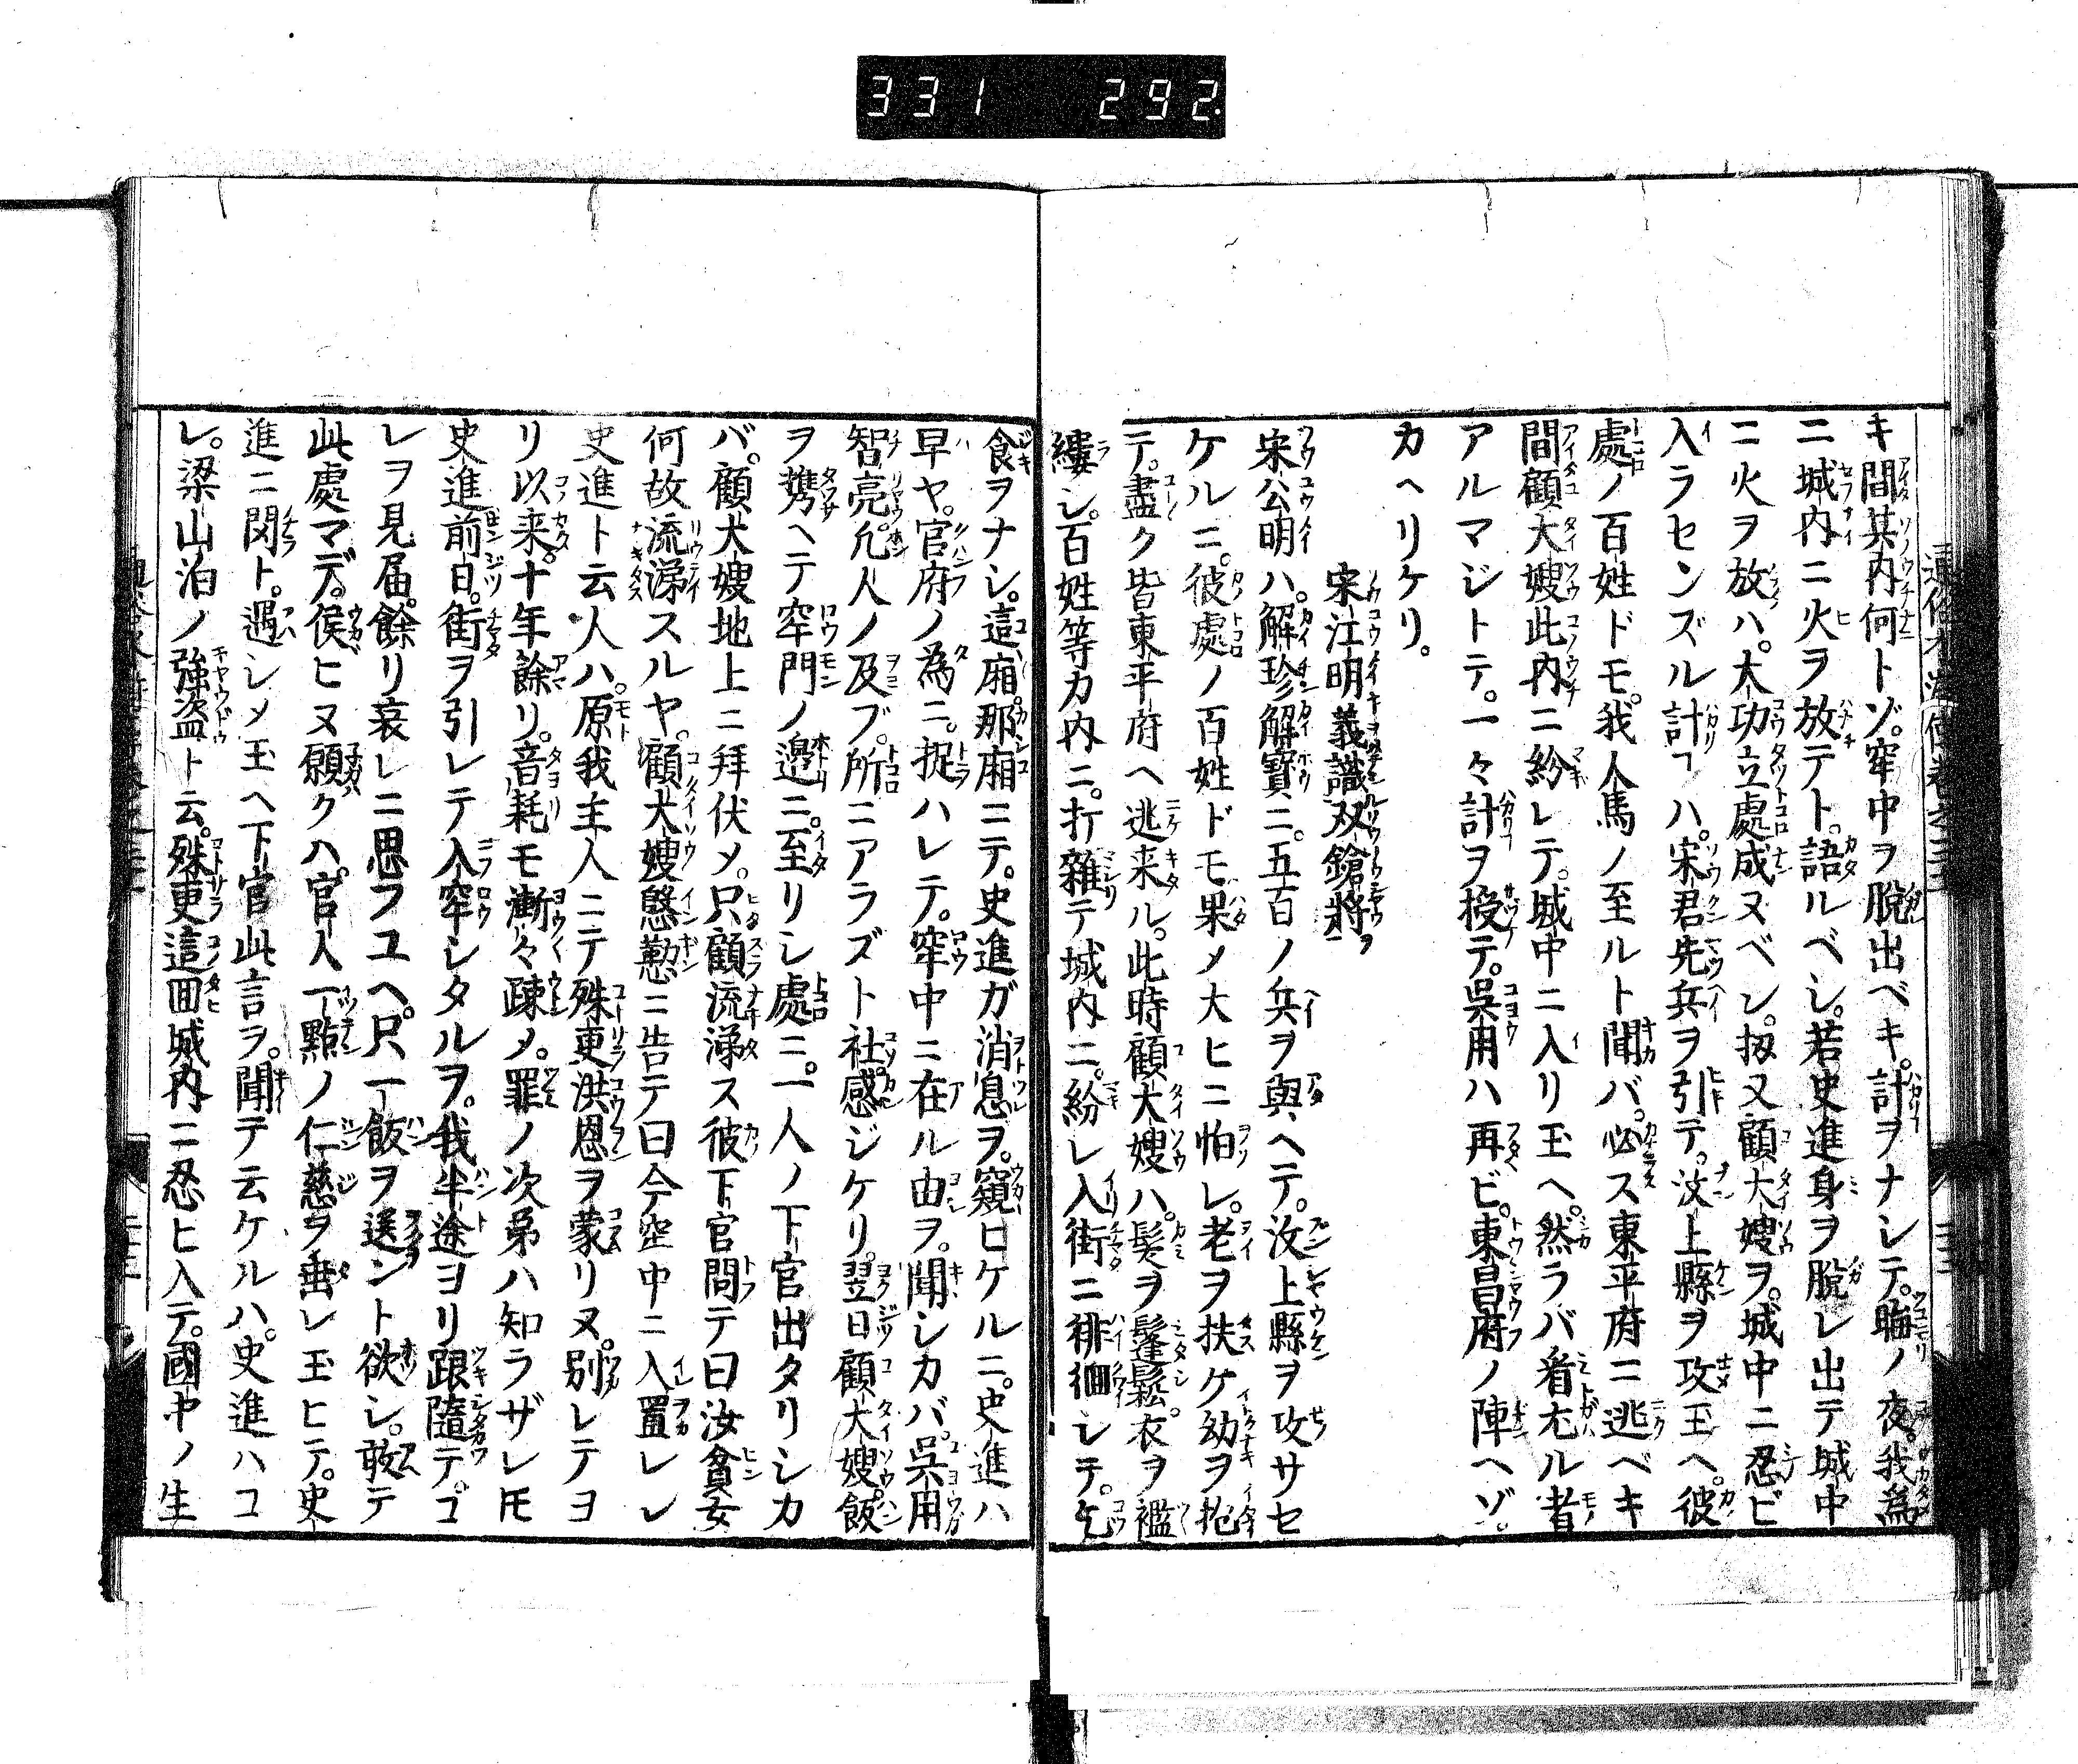 331 292
キ間其内何トゾ。窂中ヲ脱出ベキ。計ヲナシテ。晦ノ夜。我為
ニ城内ニ火ヲ放テト。語ルベシ。若史進身ヲ脱レ出テ城中
ニ火ヲ放ハ。大功立處成ヌベシ。扨又顧大嫂ヲ。城中ニ忍ビ
入ラセンズル計ヿハ。宋君先兵ヲ引テ。汶上縣ヲ攻玉ヘ。彼
處ノ百姓ドモ。我人馬ノ至ルト聞バ。必ス東平府ニ逃ベキ
間顧大嫂此内ニ紛レテ。城中ニ入リ玉ヘ。然ラバ看尤ル者
アルマジトテ。一々計ヲ授テ。呉用ハ再ビ。東昌府ノ陣ヘゾ。
カヘリケリ。
宋江明義識双鎗將ヲ
宋公明ハ。解珍解寳ニ。五百ノ兵ヲ與ヘテ。汶上縣ヲ攻サセ
ケルニ。彼處ノ百姓ドモ果メ大ヒニ怕レ。老ヲ扶ケ幼ヲ抱
テ。盡ク皆東平府ヘ逃来ル。此時顧大嫂ハ。髪ヲ鬔鬆。衣ヲ襤
縷シ。百姓等カ内ニ。打雜テ城内ニ。紛レ入街ニ徘徊シテ。乞
食ヲナシ。這廂。那廂ニテ。史進ガ消息ヲ。窺ヒケルニ。史進ハ
早ヤ。官府ノ為ニ。捉ハレテ。窂中ニ在ル由ヲ。聞シカバ。呉用
智亮。凢人ノ及ブ。所ニアラズト社。感ジケリ。翌日顧大嫂。飯
ヲ携ヘテ窂門ノ邉ニ。至リシ處ニ。一人ノ下官出タリシカ
バ。顧大嫂地上ニ拜伏メ。只顧流涕ス彼下官問テ曰汝貧女
何故流涕スルヤ。顧大嫂慇懃ニ告テ曰今窂中ニ入置レシ
史進ト云人ハ。原我主人ニテ殊更洪恩ヲ蒙リヌ。別レテヨ
リ以来。十年餘リ。音耗モ漸々疎メ。罪ノ次第ハ知ラザレ𪜈
史進前日。街ヲ引レテ入窂シタルヲ。我半途ヨリ跟隨テ。コ
レヲ見届。餘リ哀レニ思フユヘ。只一飯ヲ送ント欲シ。敢テ
此處マデ。候ヒヌ願クハ。官人一點ノ仁慈ヲ垂レ玉ヒテ。史
進ニ閃ト。遇シメ玉ヘ下官此言ヲ。聞テ云ケルハ。史進ハコ
レ。梁山泊ノ強盗ト云。殊更這回城内ニ忍ヒ入テ。國中ノ生